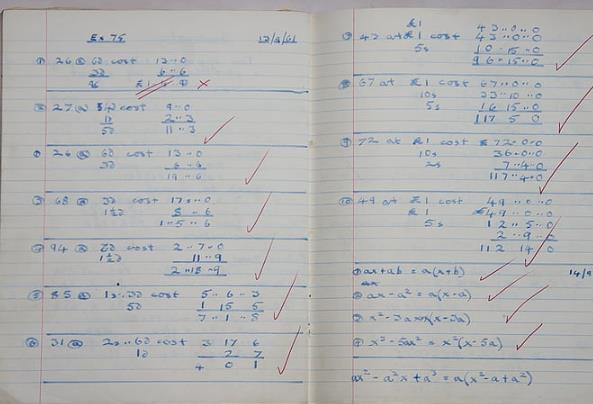 Ex 75 12/9/61
① 26 @ 6d cost 13 .. 0
3d 6 .. 6
② 27 @ 4d cost 9 .. 0
1d 2 .. 3
5d 11 .. 3
26 @ 6d cost 13 .. 0
3d 6 .. 6
19 .. 6
③ 68 @ 3d cost 17 .. 0
1½d 8 .. 6
1 .. 5 .. 6
94 @ cost 2 .. 7 .. 0
1½d 11 .. 9
2 .. 18 .. 9
⑤ 85 @ 1s .. 3d cost 5 .. 6 .. 3
5d 1 15 5
7 .. 1 .. 8
⑥ 31 @ 2s .. 6d cost 3 17 6
1d 2 7
4 0 1
⑦ 43 at £1 cost 43 .. 0 .. 0
£1 43 .. 0 .. 0
5s 10 .. 15 .. 0
96 .. 15 .. 0
⑧ 67 at £1 cost 67 .. 0 .. 0
10s 33 .. 10 .. 0
5s 16 15 .. 0
117 5 0
⑨ 72 at £1 cost £ 72 .. 0 .. 0
10s 36 .. 0 .. 0
2s 7 .. 4 .. 0
117 .. 4 .. 0
⑩ 49 at £1 cost 49 .. 0 .. 0
£1 £49 .. 0 .. 0
5s 12 .. 5 .. 0
2 .. 9 .. 0
112 14 0
① ax+ab = a(x+b) 14/9
② ax - a² = a(x-a)
x² - 3ax x(x-3a)
x³ - 5ax² = x²(x-5a)
ax² - a²x + a³ = a(x² - a + a²)